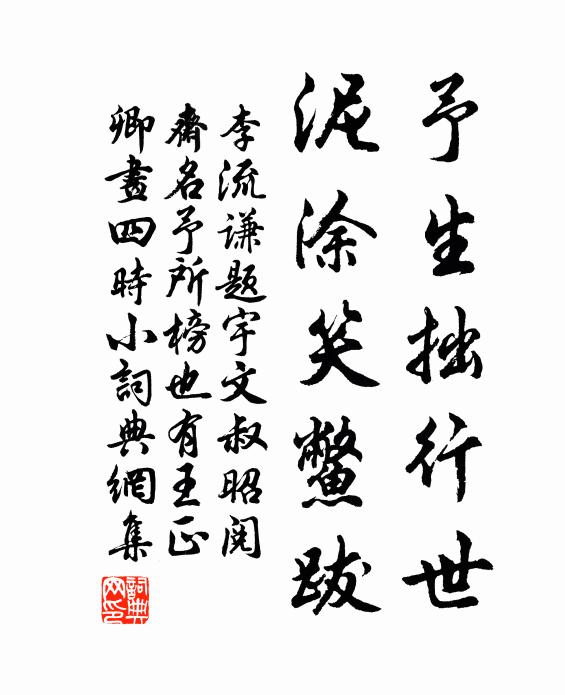 予生拙行世
泥涂笑鳖跋
李流谦题宇文叔昭阅
齋名予所榜也有王正
卿畫四時小詞典網集
詞典网印